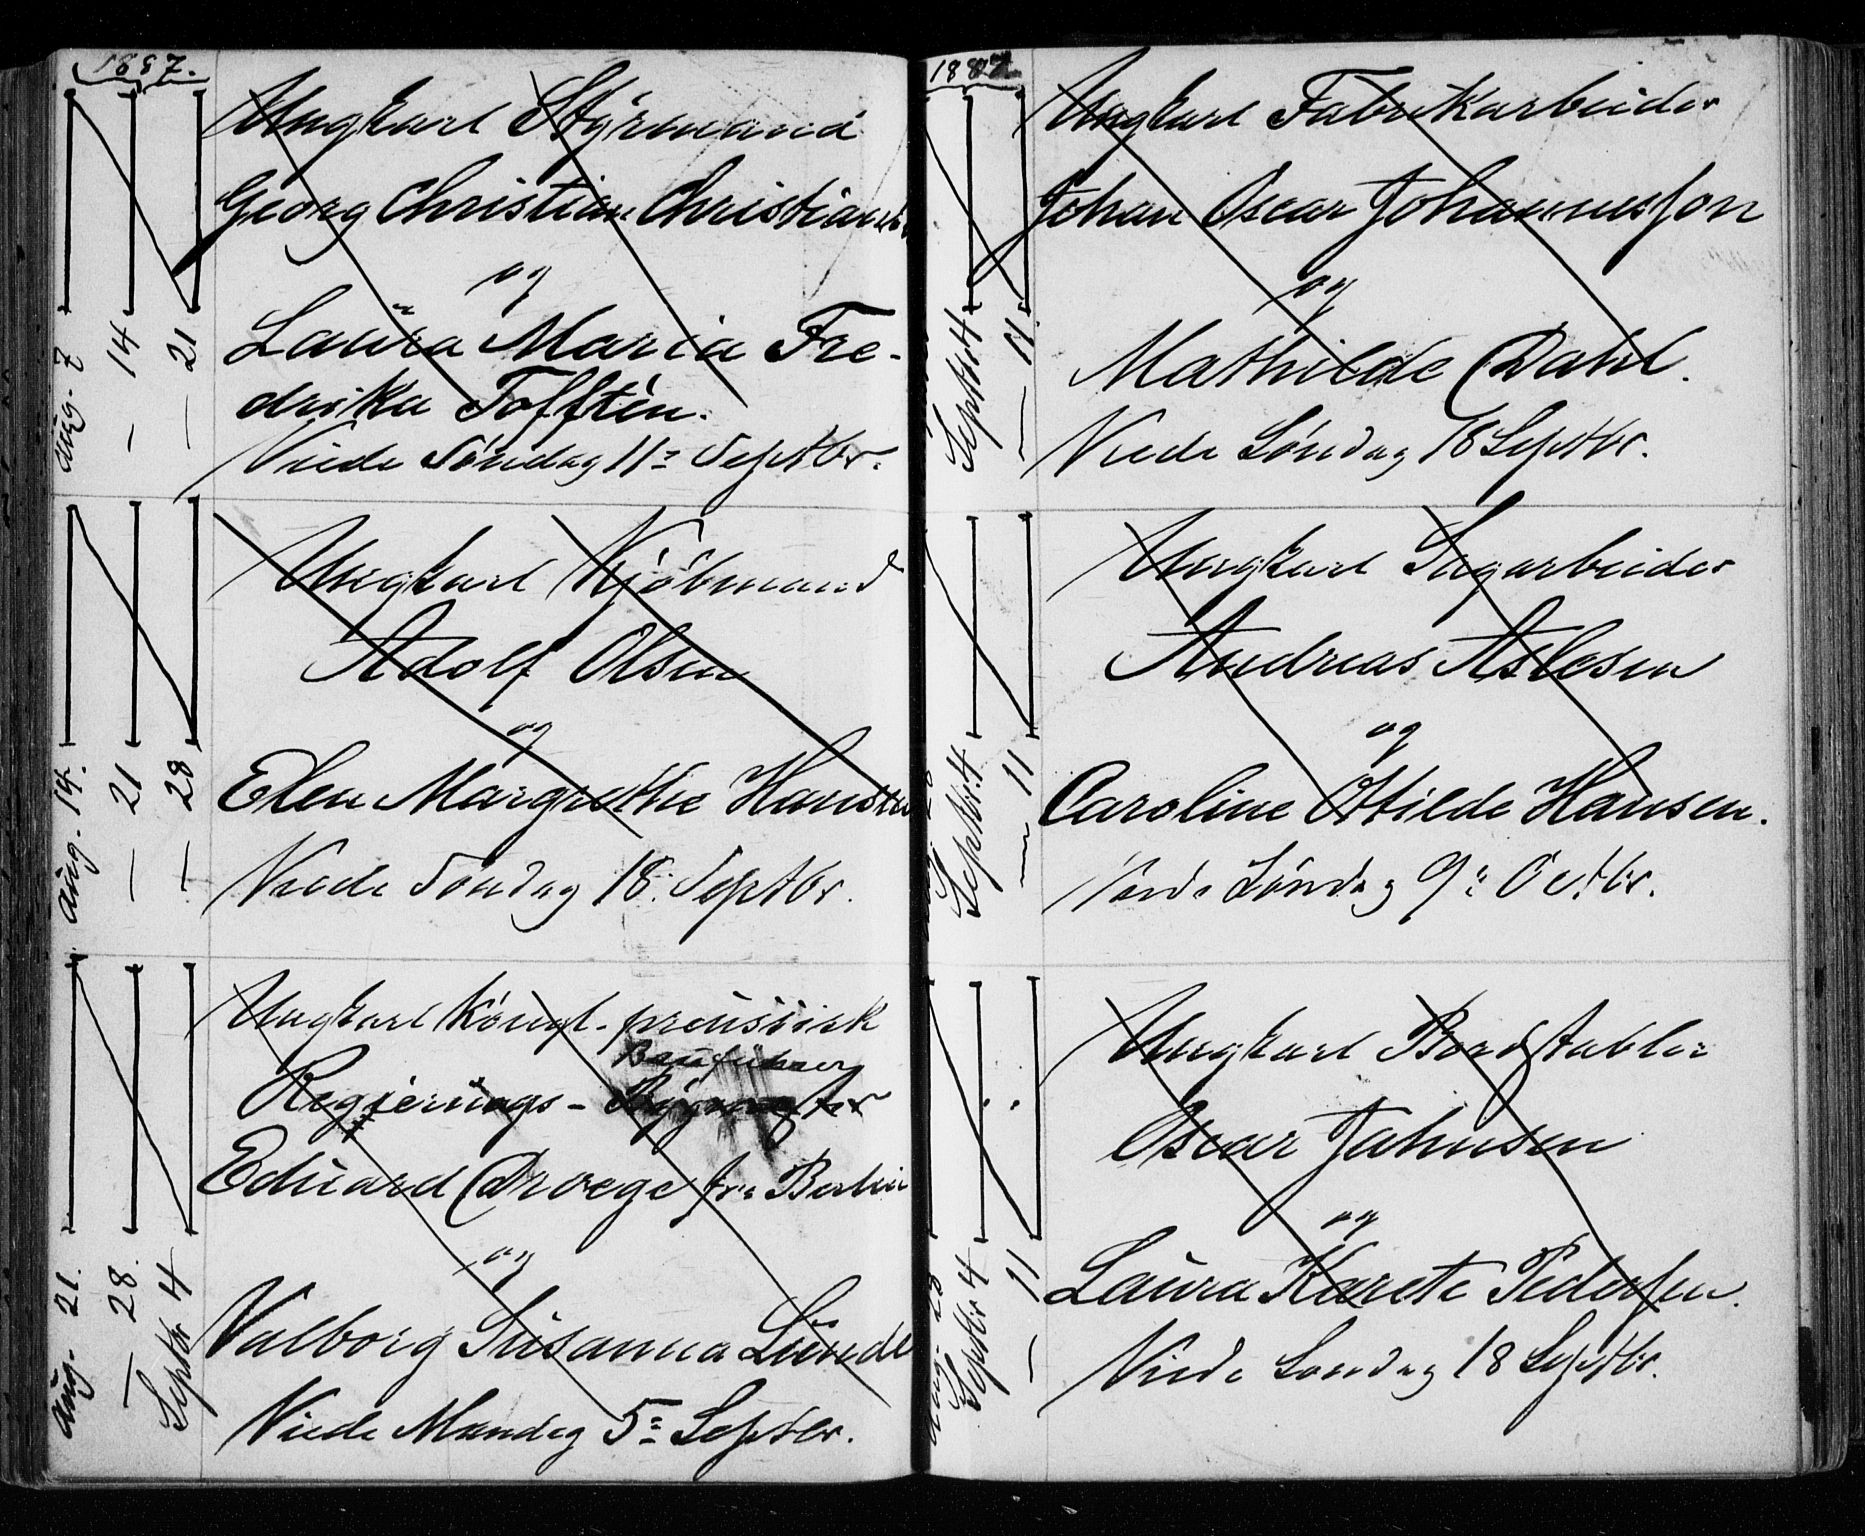 1887.
Aug. 7
— 14
— 21
Ungkarl Styrmand
Georg Christian Christiansen
og
Laura Maria Fre-
drika Tofftèn.
Viede Søndag 11: Septbr.
Aug. 14.
— 21
— 28
Ungkarl Kjøbmand
Adolf Olsen
og
Elen Margrethe Hansen
Viede Søndag 18. Septbr.
Aug. 21.
— 28.
Septbr 4
Ungkarl Köngl. preüssisk
Baufuhrer
Regierungs-
Eduard Droege fra Berlin
og
Valborg Susanna Lunde
Viede Mandag 5: Septbr.
1887
Septbr 4
— 11.
Ungkarl Fabrikarbeider
Johan Oscar Johannesson
og
Mathilde Dahl.
Viede Søndag 18 Septbr.
Septbr. 4
— 11
Ungkarl Sagarbeider
Andreas Aslesen
og
Caroline Otilde Hansen.
Viede Søndag 9: Octbr.
Aug. 28
Septbr 4
— 11
Ungkarl Bordstabler
Oscar Jahnsen
og
Laura Karete Pedersen.
Viede Søndag 18 Septbr.